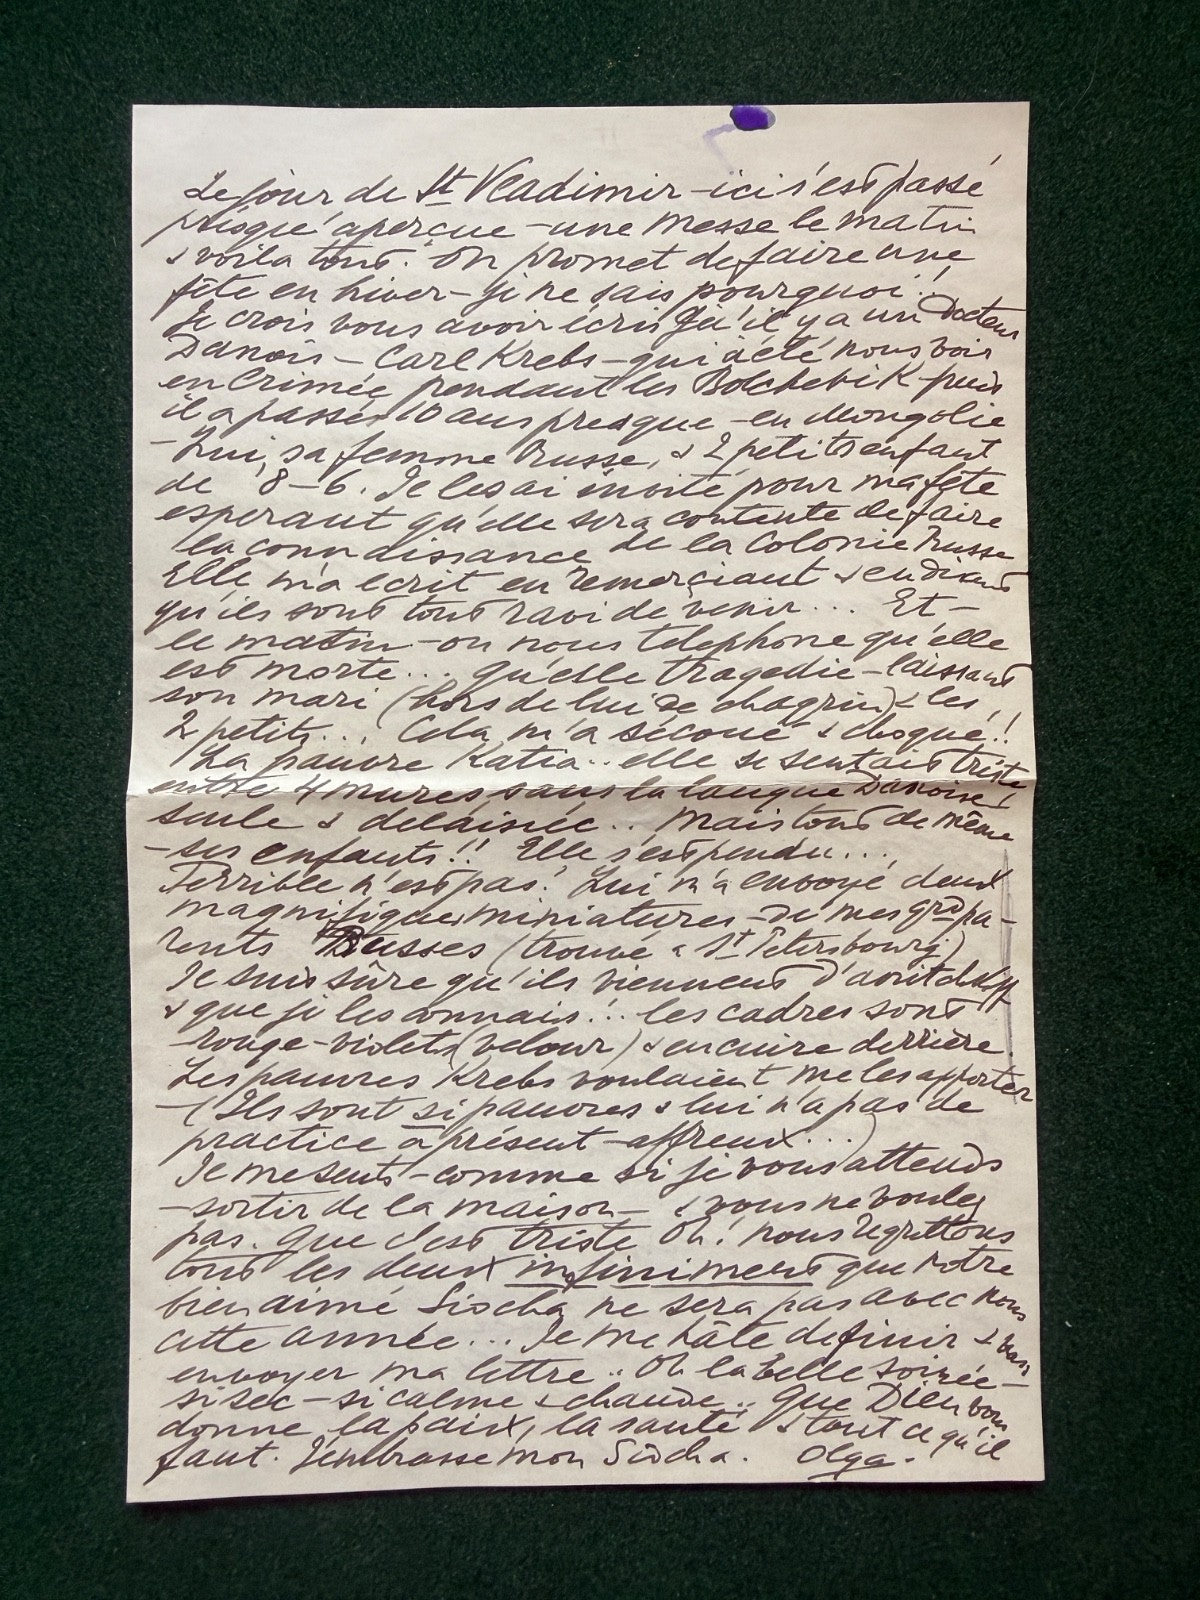 Le jour de St Vladimir – ici s'est passé
présqu' aperçue – une messe le matin
& voila tout. On promet de faire une
fête en hiver – je ne sais pourquoi!
Je crois vous avoir écris qu'il y a un Docteur
Danois – Carl Krebs – qui a été nous voir
en Crimée pendant les Bolchevik puis
il a passé 10 ans presque – en Mongolie
– Lui, sa femme Russe, & 2 petits enfant
de 8–6. Je les ai invité pour ma fête
esperant qu'elle sera contente de faire
la connaissance de la Colonie Russe
Elle m'a ecrit en remerçiant & en disant
qu'ils sont tous ravi de venir... Et –
le matin – on nous telephone qu'elle
est morte... qu'elle tragedie – laissant
son mari (hors de lui de chagrin) & les
2 petits... Cela m'a sécoué & choqué!!
La pauvre Katia.. elle se sentait triste
entre 4 mures, sans la langue Danoise,
seule & delaisiée.. Mais tout de même
– ses enfants!! Elle s'est pendu...
Terrible n'est pas! Lui m'a envoyé deux
magnifiques miniatures – de mes grd pa-
rents Russes (trouvé à St Petersbourg)
Je suis sûre qu'ils viennent d'
& que je les connais!.. les cadres sont
rouge-violets (velour) & en cuire derrière.
Les pauvres Krebs voulaient me les apporter
– (Ils sont si pauvres & lui n'a pas de
practice à présent – affreux...)
Je me sents – comme si je vous attends
– sortir de la maison – & vous ne voulez
pas. Que c'est triste Oh! nous regrettons
tous les deux infiniment que notre
bien aimé Siocha ne sera pas avec nous
cette année... Je me hâte de finir & vous
envoyer ma lettre.. Oh la belle soirée –
si sec – si calme & chaude.. Que Dieu vous
donne la paix, la santé & tout ce qu'il
faut. J'embrasse mon Siocha. Olga.